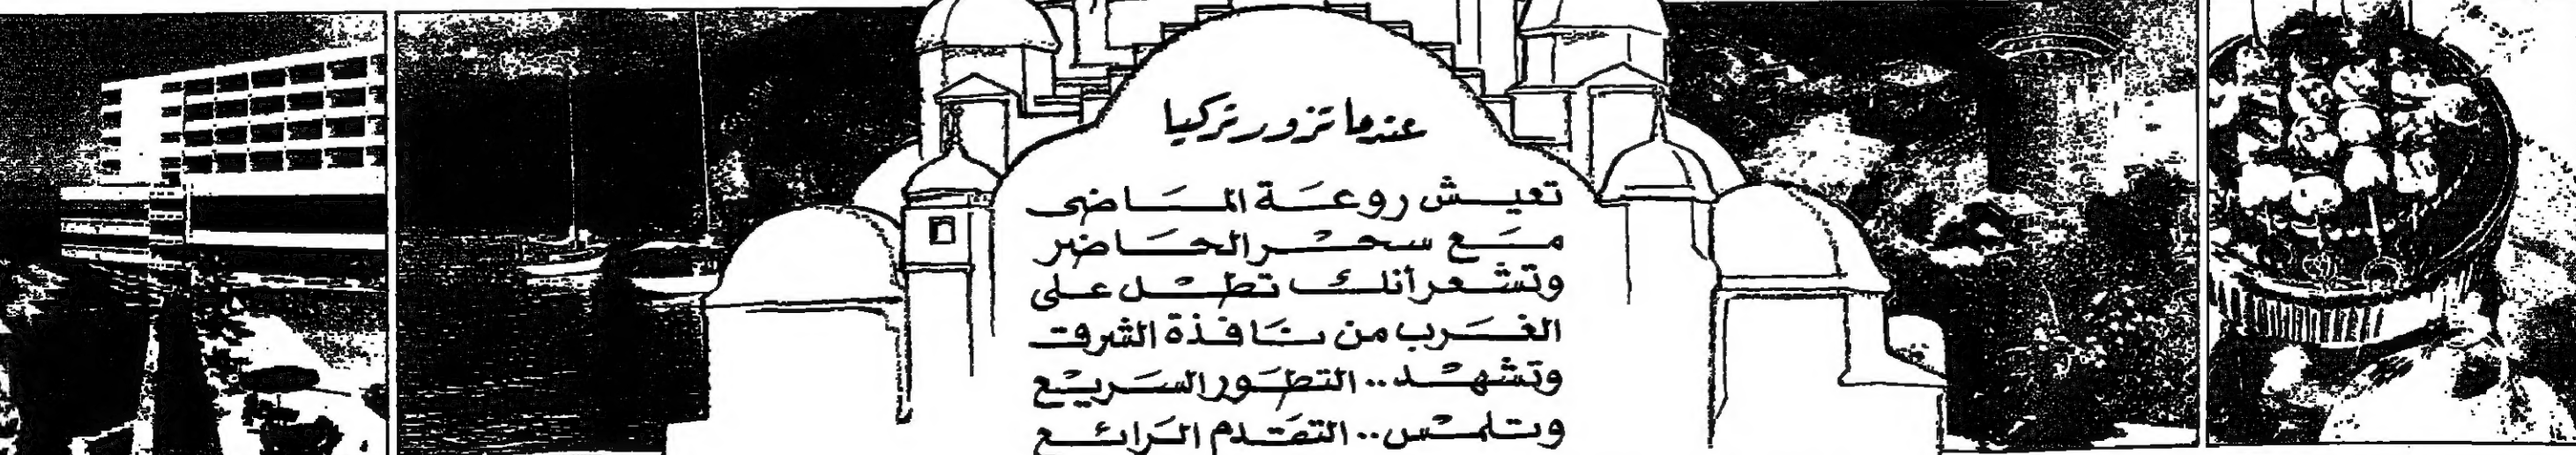 عندما تزور تركيا
تعيش روعة الماضى
مع سحر الحاضر
وتشعر أنك تطل على
الغرب من نافذة الشرق
وتشهد.. التطور السريع
وتلمس.. التقدم الرائع